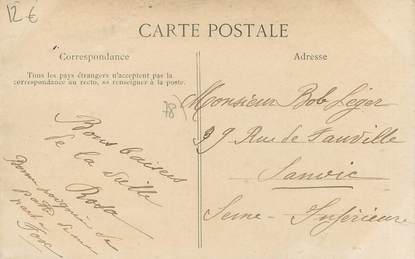 12 €
CARTE POSTALE
Correspondance
Adresse
Tous les pays étrangers n'acceptent pas la
correspondance au recto, se renseigner à la poste.
78
Monsieur Bob Léger
39 Rue de Fauville
Sanvic
Seine-Inférieure
Bons baisers
de la
Rosa
Bonne poignée de
patte d'une
part à